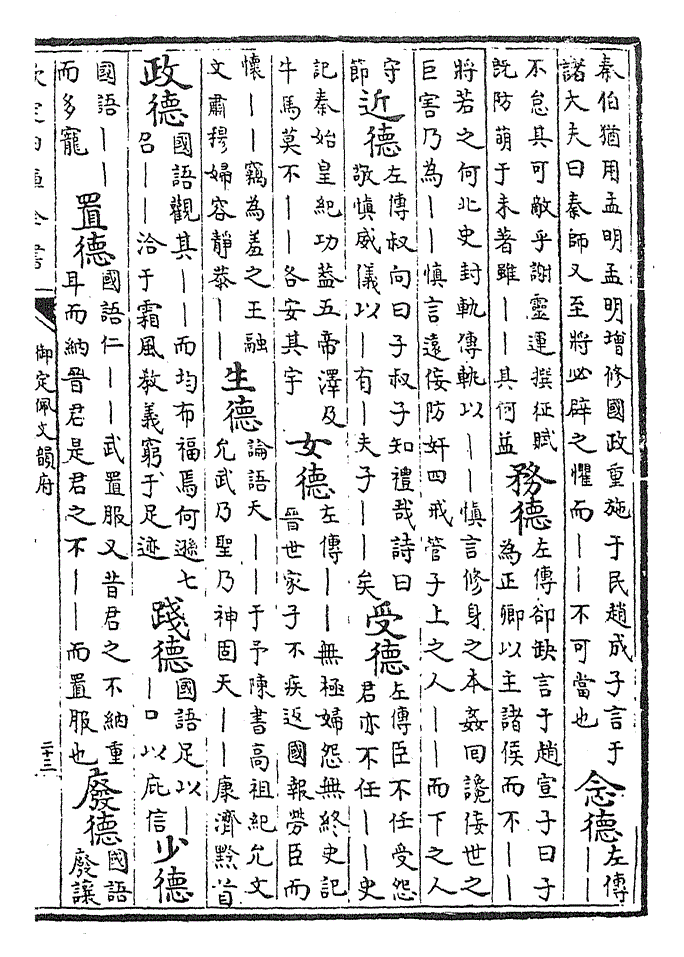 秦伯猶用孟明孟明增修國政重施于民趙成子言于
諸大夫曰秦師又至將必辟之懼而——不可當也
念德
左傳
——
不怠其可敵乎謝靈運撰征賦
既防萌于未著雖——其何益
務德
左傳卻缺言于趙宣子曰子
為正卿以主諸侯而不——
將若之何北史封軌傳軌以——慎言修身之本姦回讒佞世之
巨害乃為——慎言遠佞防奸四戒管子上之人——而下之人
守
節
近德
左傳叔向曰子叔子知禮哉詩曰
敬慎威儀以—有—夫子——矣
受德
左傳臣不任受怨
君亦不任——史
記秦始皇紀功蓋五帝澤及
牛馬莫不——各安其宇
女德
左傳——無極婦怨無終史記
晉世家子不疾返國報勞臣而
懷——竊為羞之王融
文肅穆婦容靜恭——
生德
論語天——于予陳書高祖紀允文
允武乃聖乃神固天——康濟黔首
政德
國語觀其——而均布福焉何遜七
召——洽于霜風教義窮于足迹
踐德
國語足以—
—口以庇信
少德
國語——
而多寵
置德
國語仁——武置服又昔君之不納重
耳而納晉君是君之不——而置服也
廢德
國語
廢讓
欽定四庫全書
御定佩文韻府
二十三